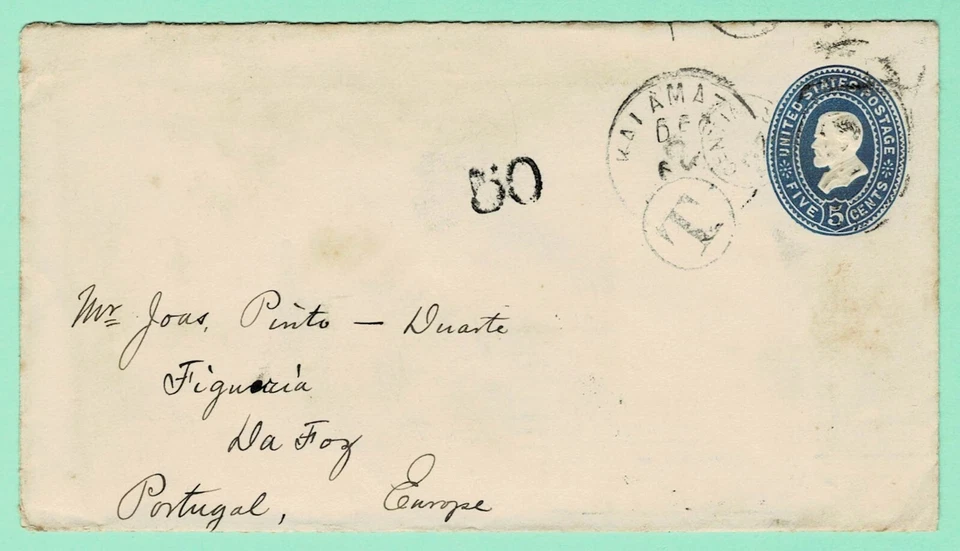 UNITED STATES POSTAGE
FIVE 5 CENTS
KALAMAZ
DEC
T
50
Mr Joas, Pinto — Duarte
Figueria
Da Foz
Portugal, Europe